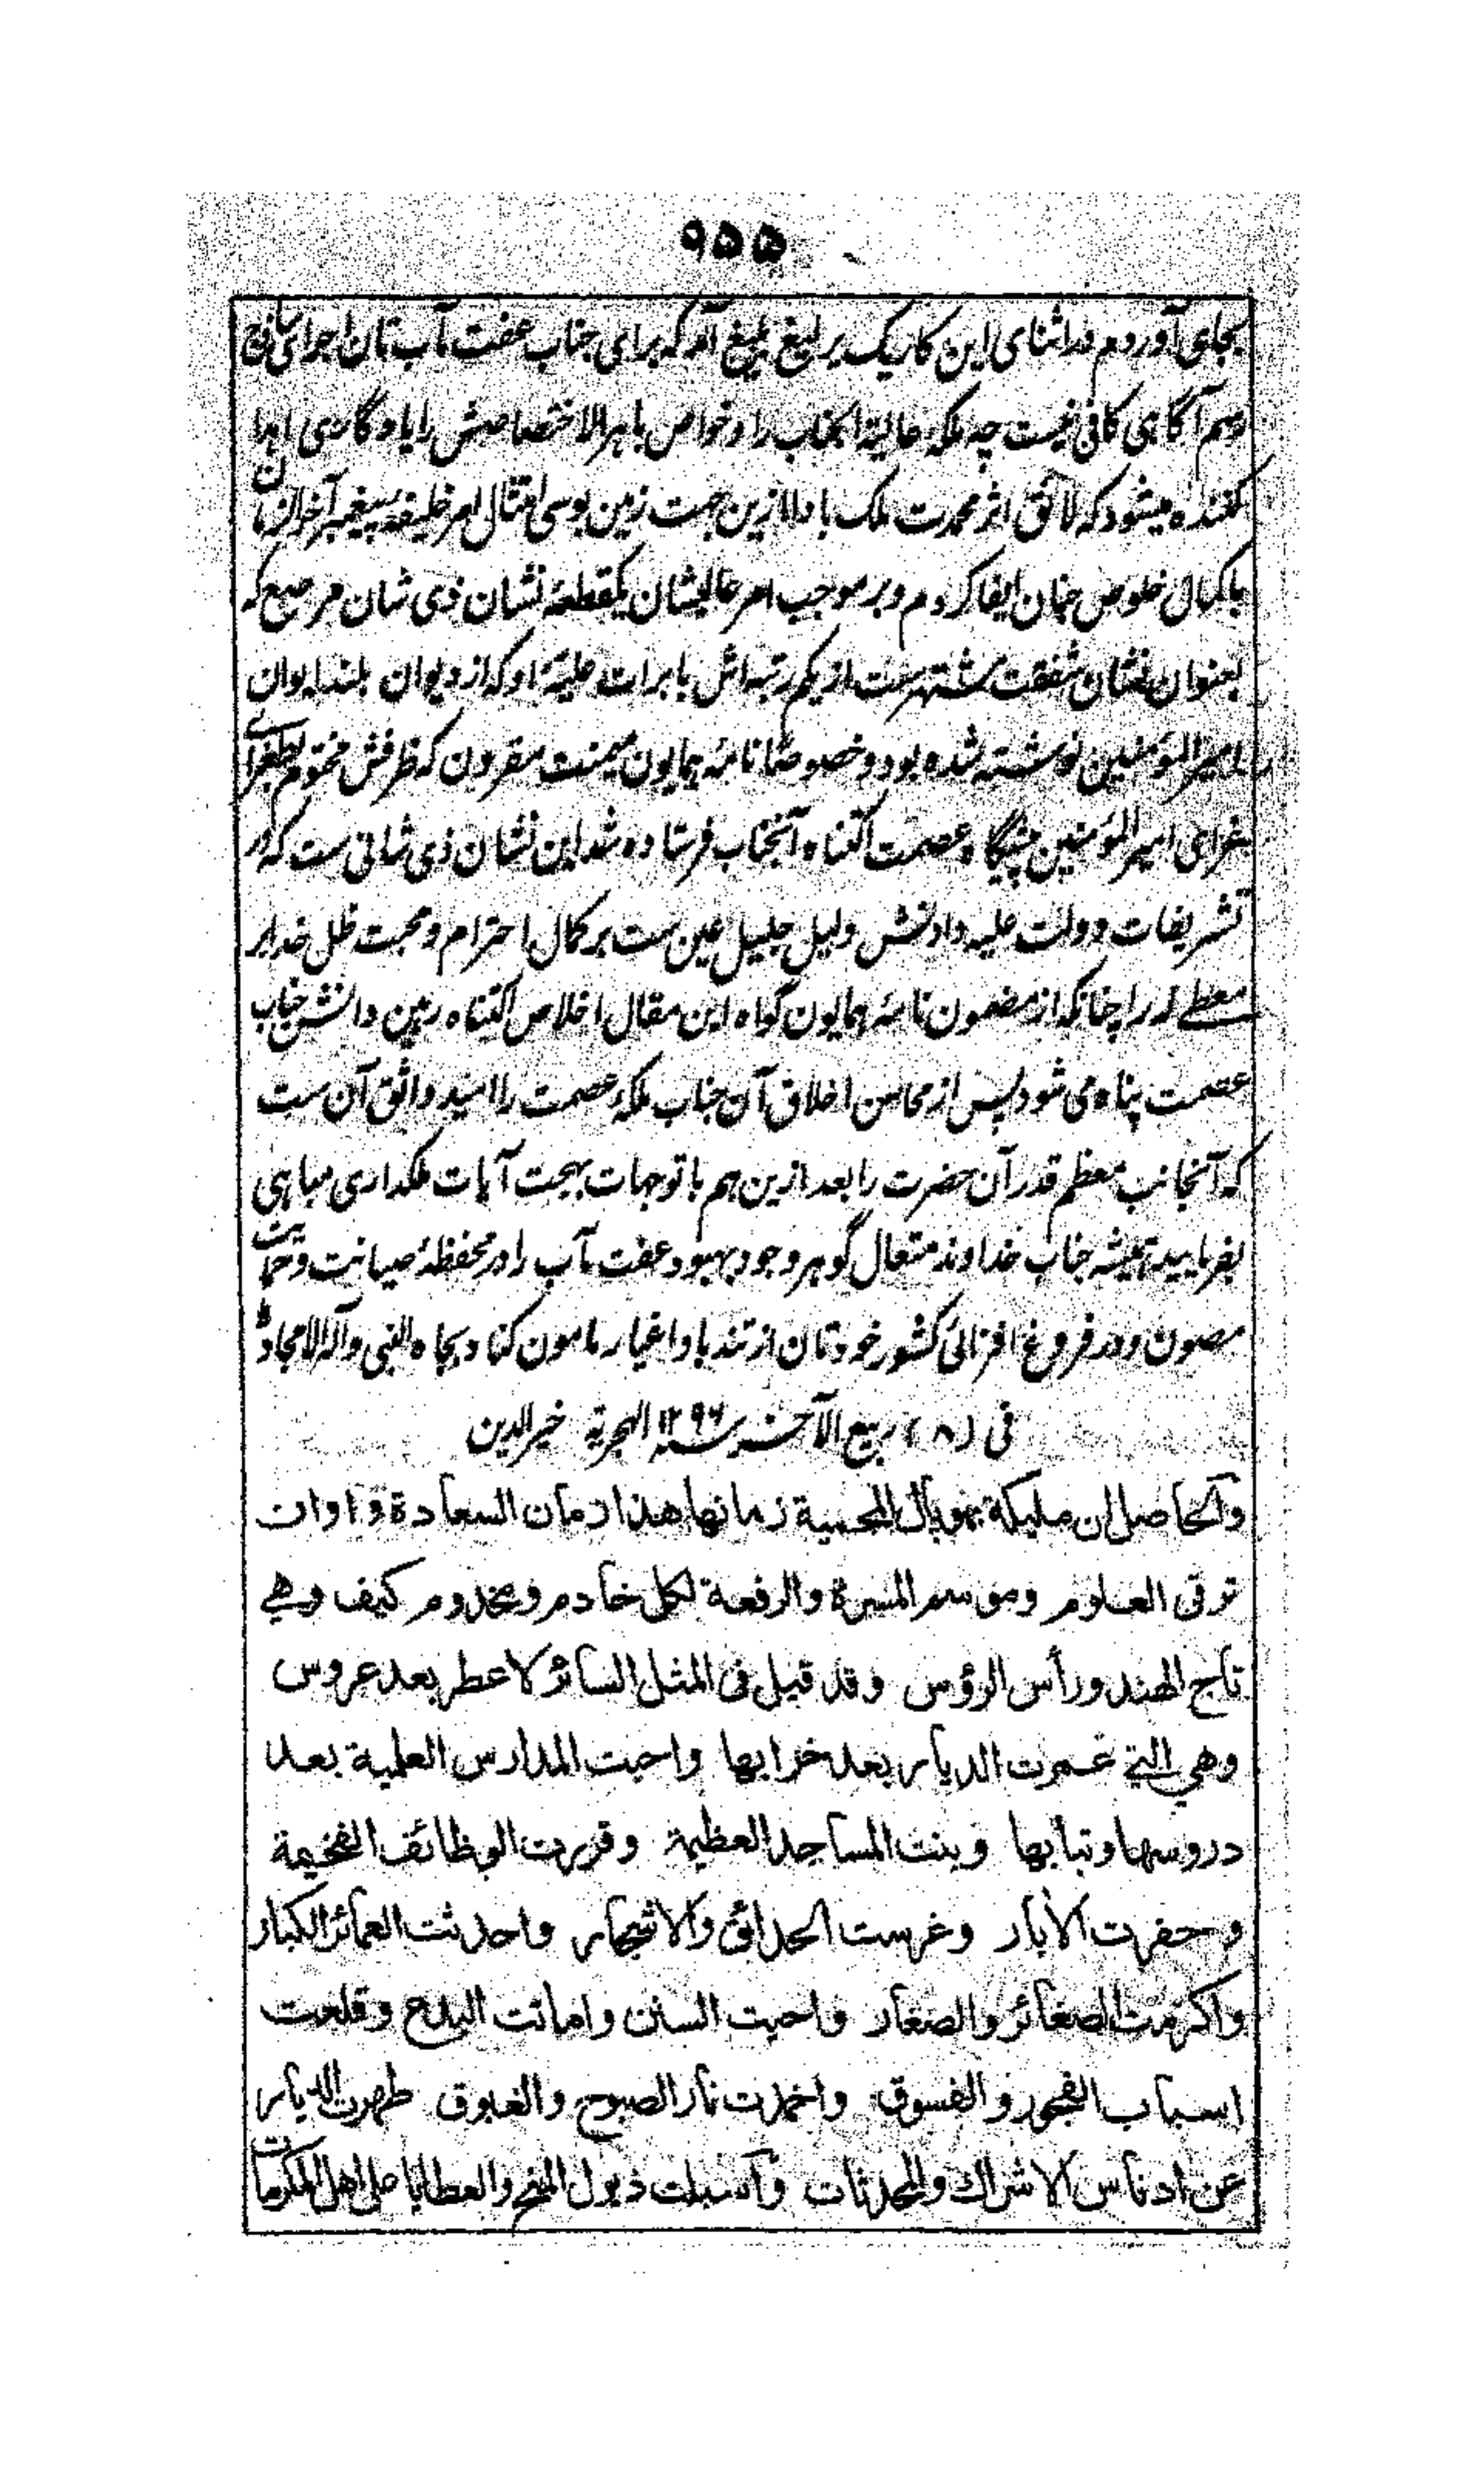 ۹۵۵
بجای آوردم در اثنای این کار یک یرلیغ بلیغ آمد که برای جناب عفت مآب تان اجرای
رسم آگاهی کافی نیست چه ملکه عالیة الجناب را و خواص باهر الاختصاصش را یادگاری اهدا
کننده میشود که لائق اثر محمدت ملک باد ازین جهت زمین بوسی امتثال امر خلیفهٔ پیغمبر آخرالزمان
باکمال خلوص جنان ایفا کردم و بر موجب امر عالیشان یکقطعه نشان ذی شان مرصع که
بعنوان نشان شفقت مشتهرست از یکم رتبه اش با برات علیهٔ او که از دیوان بلند ایوان
امیر المؤمنین نوشته شده بود و خصوصا نامهٔ همایون میمنت مقرون که ظرفش مختوم بطغرای
غرای امیر المؤمنین پیشگاه عصمت اکتناه آنجناب فرستاده شد این نشان ذی شانی ست که در
تشریفات دولت علیه دادنش دلیل جلیل عین ست بر کمال احترام و محبت ظل خدا بر
معطی له را چنانکه از مضمون نامهٔ همایون گواه این مقال اخلاص اکتناه رهین دانش جناب
عصمت پناه می شود پس از محاسن اخلاق آن جناب ملکهٔ عصمت را امید واثق آن ست
که آنجانب معظم قدر آن حضرت را بعد ازین هم با توجهات بهجت آیات ملکداری مباهی
بفرمایید همیشه جناب خداوند متعال گوهر وجود بهبود عفت مآب را در محفظهٔ صیانت و حمایت
مصون و در فروغ افزائی کشور خودتان از تندباد اغیار مامون کناد بجاه النبی وآله الامجاد
فی (۸) ربیع الآخر سنه ۱۲۹۶ الهجریة خیر الدین
والحاصل ان مليكة بهوپال المحمية زمانها هذا زمان السعادة و اوان
ترقى العلوم وموسم المسرة والرفعة لكل خادم ومخدوم كيف وهي
تاج الهند ورأس الرؤس وقد قيل فى المثل السائر لاعطر بعد عروس
وهي التي عمرت الديار بعد خرابها واحيت المدارس العلمية بعد
دروسها وتبابها وبنت المساجد العظيمة وقررت الوظائف الفخيمة
وحفرت الآبار وغرست الحدائق والاشجار واحدثت العمائر الكبار
واكرمت الصغائر والصغار واحيت السنن واماتت البدع وقلعت
اسباب الفجور والفسوق واخمدت نار الصبوح والغبوق طهرت الديار
عن ادناس الاشراك والمحدثات واسبلت ذيول المنح والعطايا على اهل المكرمات